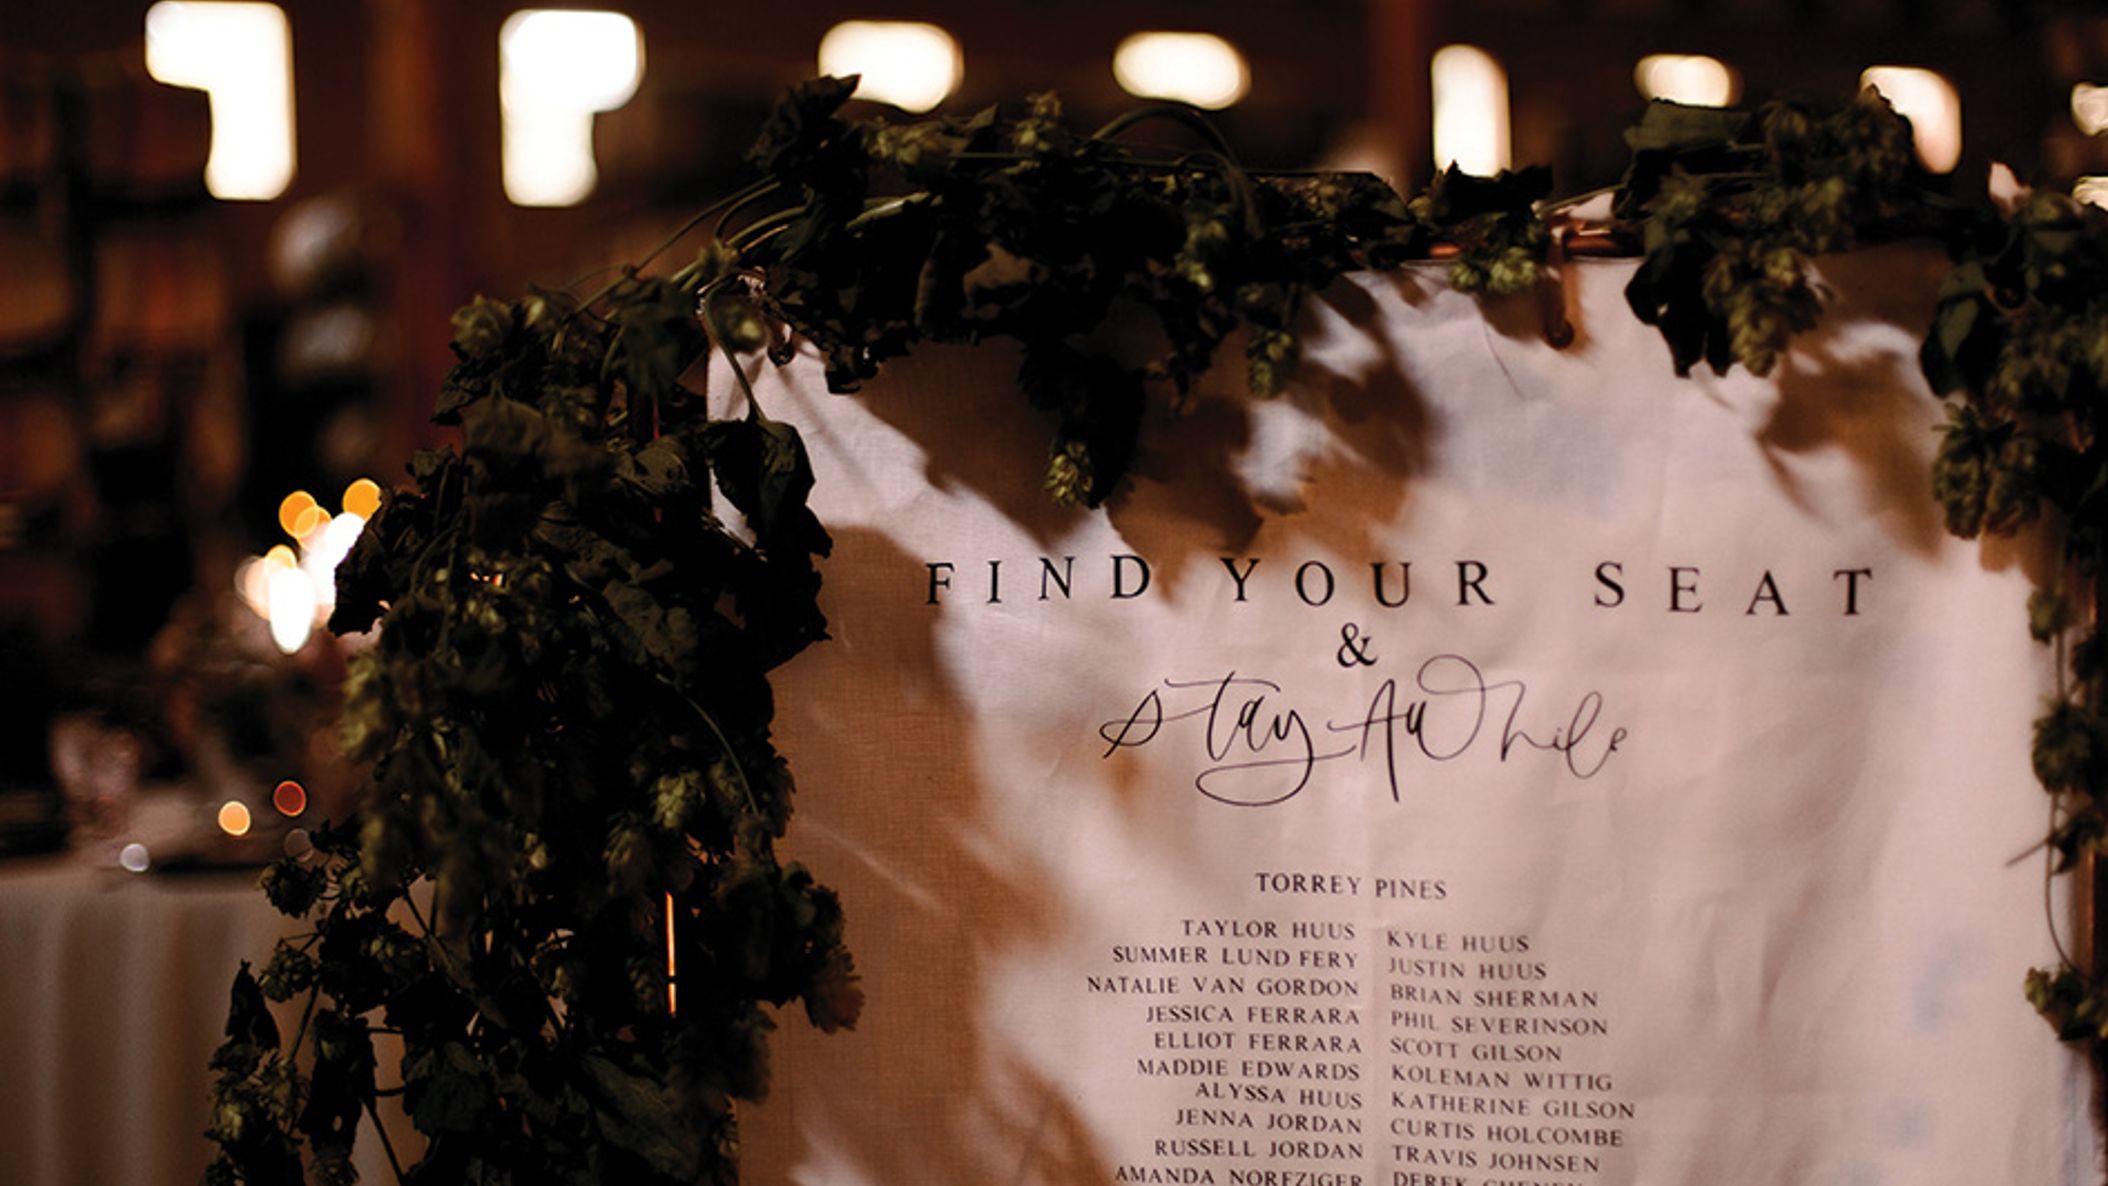 FIND YOUR SEAT
&
stay Awhile
TORREY PINES
TAYLOR HUUS KYLE HUUS
SUMMER LUND FERY JUSTIN HUUS
NATALIE VAN GORDON BRIAN SHERMAN
JESSICA FERRARA PHIL SEVERINSON
ELLIOT FERRARA SCOTT GILSON
MADDIE EDWARDS KOLEMAN WITTIG
ALYSSA HUUS KATHERINE GILSON
JENNA JORDAN CURTIS HOLCOMBE
RUSSELL JORDAN TRAVIS JOHNSEN
AMANDA DEREK